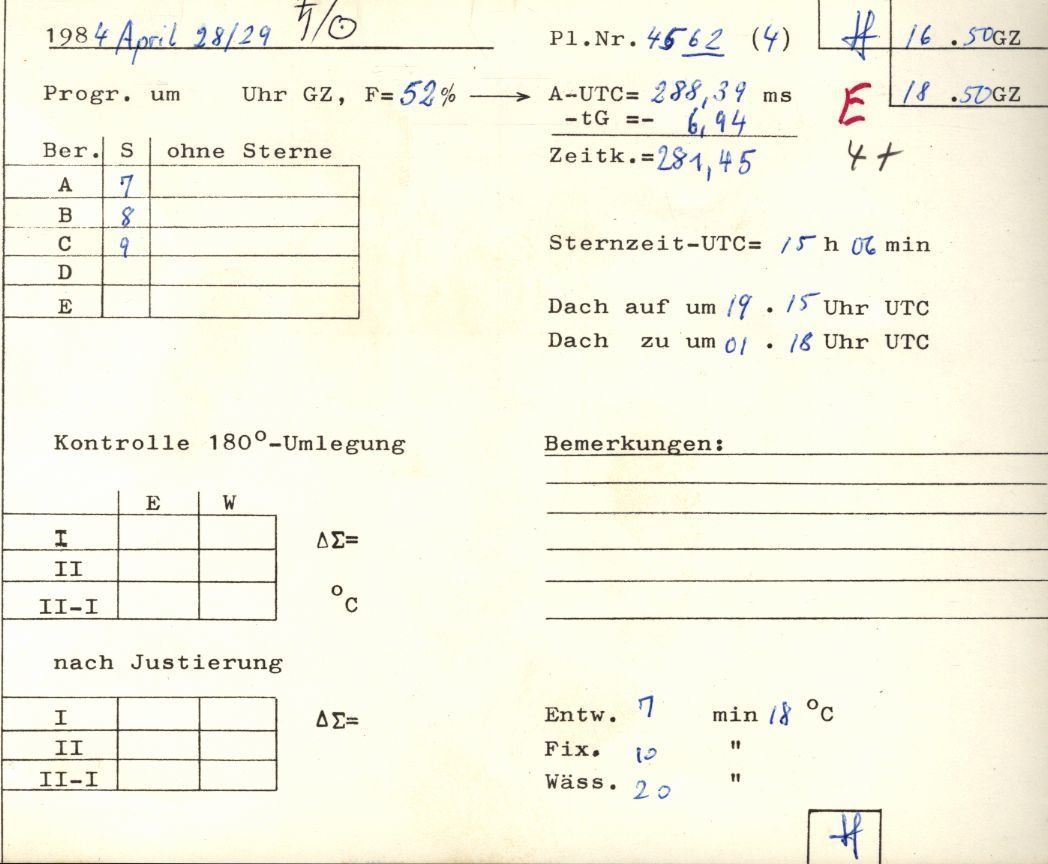 1984 April 28/29 ♄/☉ Pl.Nr. 4562 (4) H 16 .50GZ
Progr. um Uhr GZ, F=52% → A-UTC= 288,39 ms E 18 .50GZ
-tG =- 6,94
Zeitk.=281,45 4+
Ber. S ohne Sterne
A 7
B 8
C 9
D
E
Sternzeit-UTC= 15 h 06 min
Dach auf um 19 . 15 Uhr UTC
Dach zu um 01 . 18 Uhr UTC
Kontrolle 180°-Umlegung
E W
I ΔΣ=
II
II-I °C
nach Justierung
I ΔΣ=
II
II-I
Bemerkungen:
Entw. 7 min 18 °C
Fix. 10 "
Wäss. 20 "
H